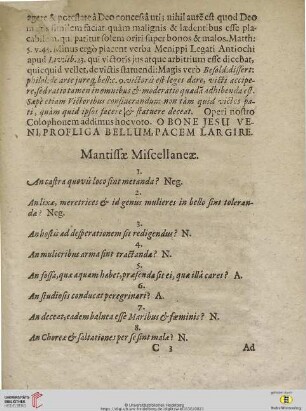 opere & potestate à Deo concessâ uti; nihil autē est quod Deo
similem faciat quàm malignis & lædentibus esse pla-
cabilem, qui pariat solem oriri super bonos & malos. Matth:
5. v. 45. Minus ergò placent verba Menippi Legati Antiochi
apud Livium. qui victoris jus atque arbitrium esse dicebat,
quicquid vellet, de victis statuendi: Magis verb Besold. dissert:
philol: de arte jureq; belli. c. 9. victoris est leges dare, victi accipe-
re, sed ratio tamen in omnibus & moderatio quadā adhibenda est.
Sæpè etiam Victoribus considerandum: non tàm quid victos pa-
ti, quàm quid ipsos facere & statuere deceat. Operi nostro
Colophonem addimus hoc voto. O BONE JESU VE-
NI, PROFLIGA BELLUM, PACEM LARGIRE.
Mantissæ Miscellaneæ.
1.
An castra quovis loco sint metanda? Neg.
2.
An lixæ, meretrices & id genus mulieres in bello sint toleran-
dæ? Neg.
3.
An hostis ad desperationem sit redigendus? N.
4.
An mulieribus arma sint tractanda? N.
5.
An fossa, quæ aquam habet, præferenda sit ei, quæ illâ caret? A.
6.
An studiosis conducat peregrinari? A.
7.
An deceat, eadem balnea esse Maribus & fœminis? N.
8.
An Choreæ & saltationes per se sint malæ? N.
C 3 Ad
UNIVERSITÄTS-
BIBLIOTHEK
HEIDELBERG
© Universitätsbibliothek Heidelberg